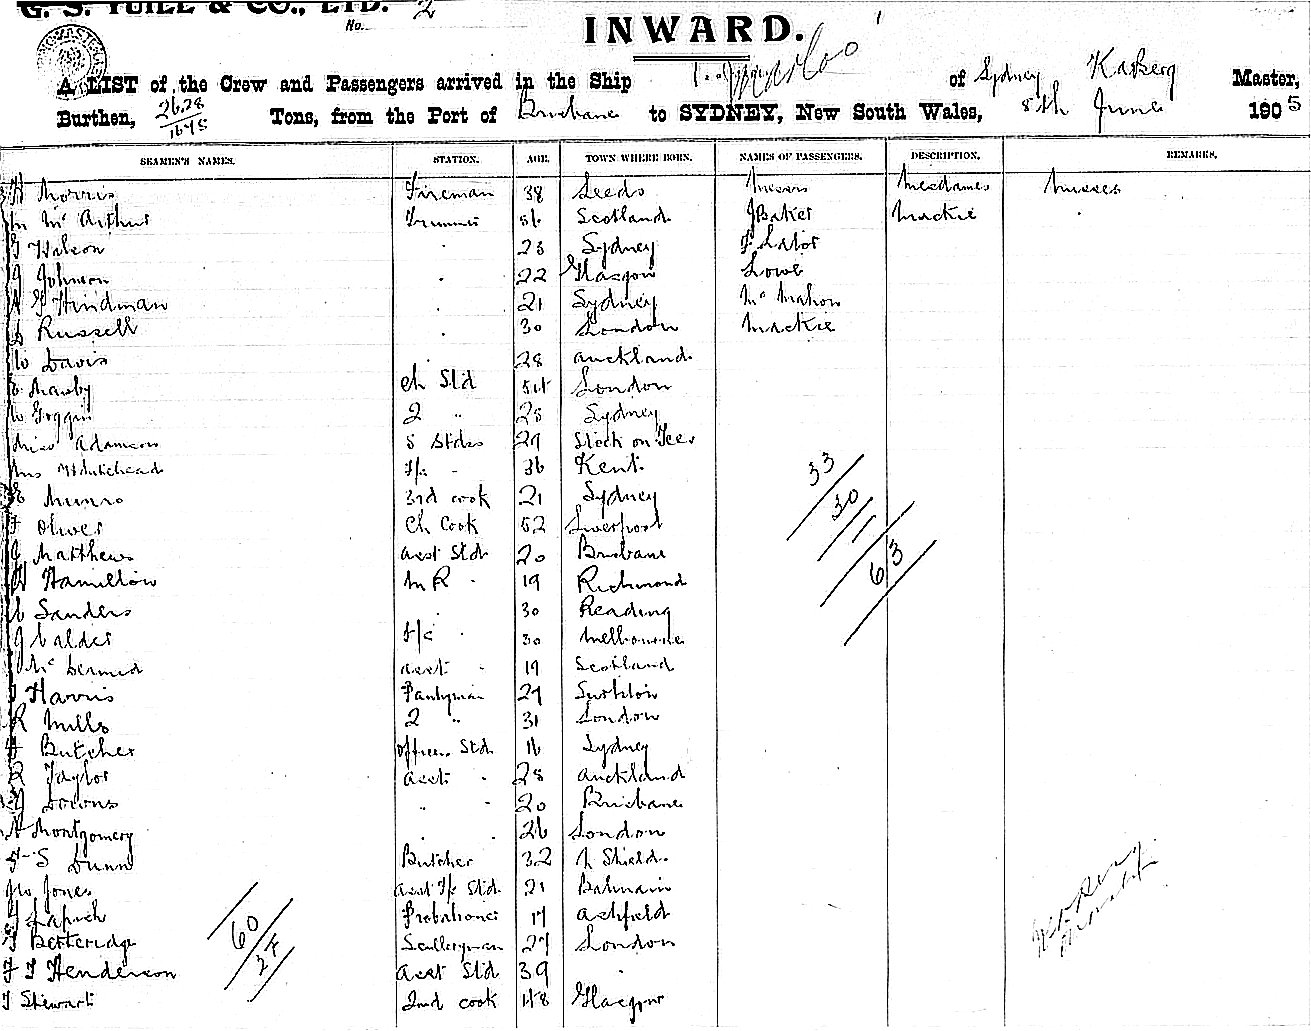 G. S. YUILL & CO., LTD.
No. 2
INWARD.
A LIST of the Crew and Passengers arrived in the Ship of Sydney Master,
Burthen, 2628 / 1645 Tons, from the Port of Brisbane to SYDNEY, New South Wales, 8th June 1905
SEAMEN'S NAMES. STATION. AGE. TOWN WHERE BORN. NAMES OF PASSENGERS. DESCRIPTION. REMARKS.
H Morris Fireman 38 Leeds Messrs Mesdames Misses
Mc Arthur Trimmer 56 Scotland J Baker Mackie
Watson 23 Sydney F Lalor
J Johnson 22 Glasgow Lowe
Hindman 21 Sydney Mc Mahon
Russell 30 London Mackie
Davis 28 Auckland
Ch Std 54 London
Goggin 2 " 25 Sydney
Miss Adamson S Stdss 27 Stock on Tees
Mrs Whitehead 36 Kent
Munro 3rd cook 21 Sydney
F Oliver Ch Cook 52 Liverpool
Matthews asst Std 20 Brisbane
Hamilton M R 19 Richmond
Sanders 30 Reading
J Calder 30 Melbourne
Mc Dermid asst 19 Scotland
Harris Pantryman 29 Surbiton
R Mills 2 " 31 London
Butcher Officers Std 16 Sydney
R Taylor asst 28 Auckland
Downs " 20 Brisbane
Montgomery 26 London
S Dunn Butcher 32 N Shields
Jones asst Std 21 Balmain
Probationer 17 Ashfield
Betteridge Sculleryman 27 London
Henderson asst Std 39
J Stewart 2nd cook 48 Glasgow
33
30
63
60